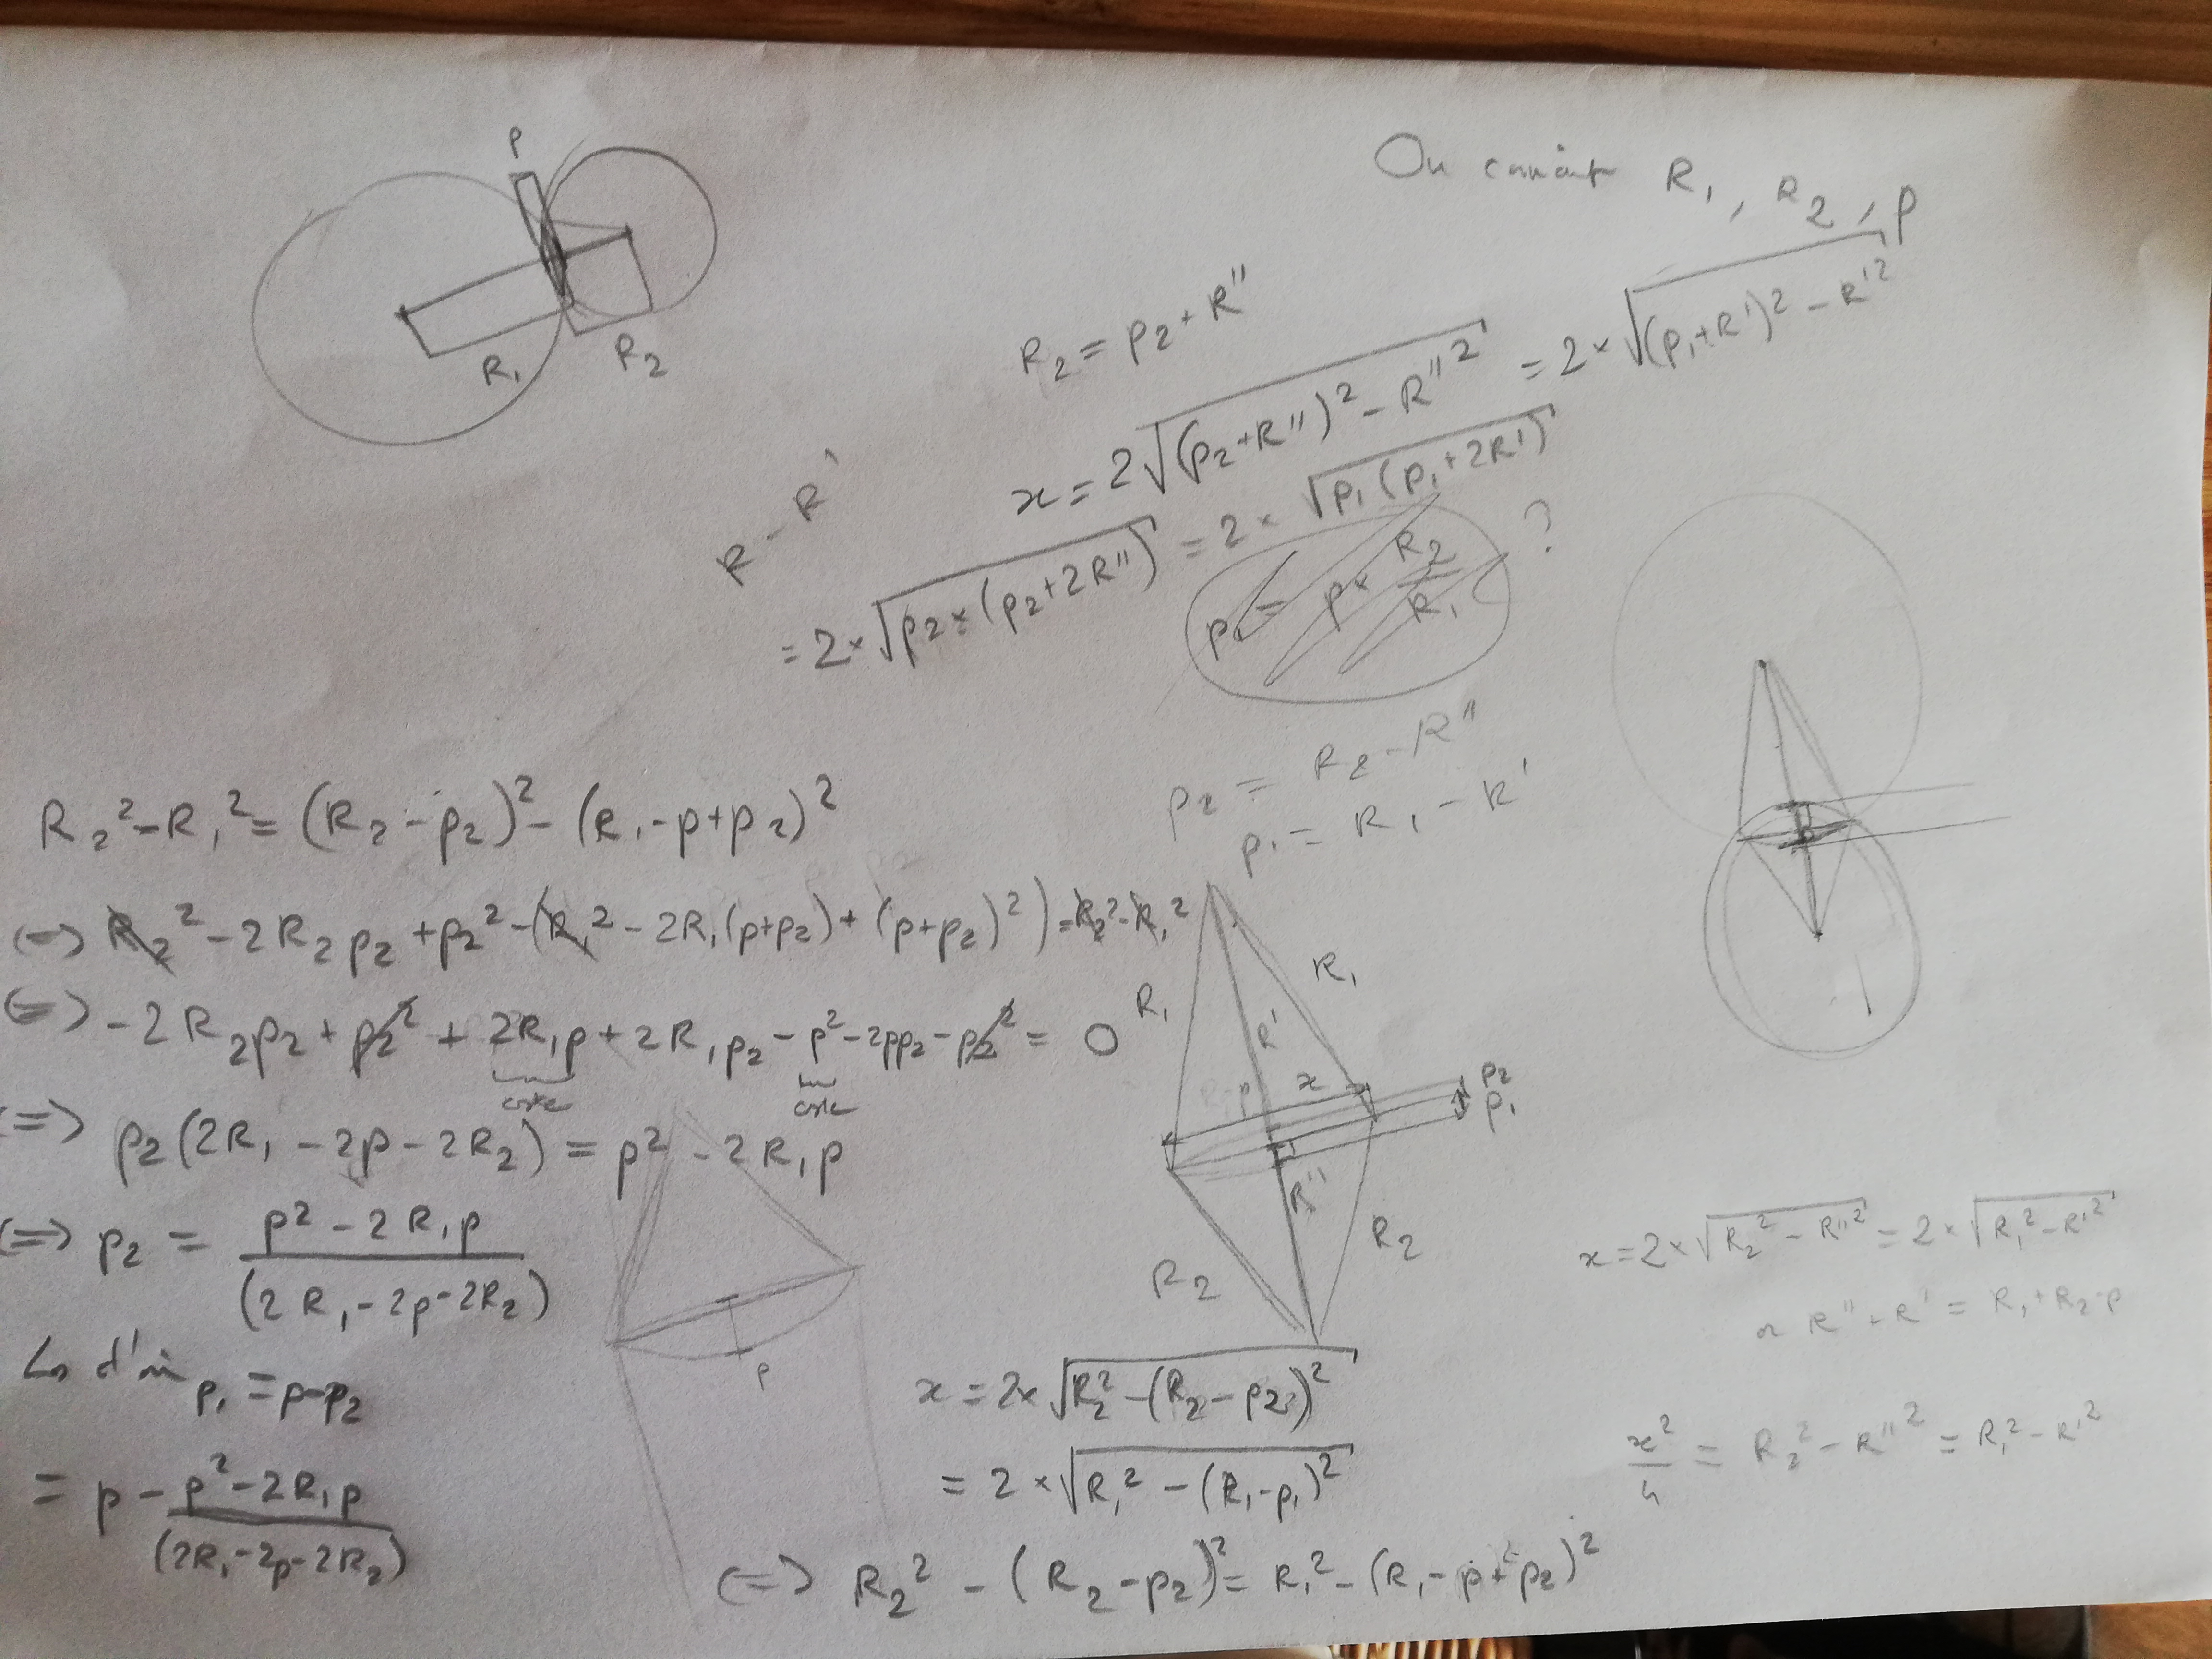 p
R₁
R₂
On connaît R₁, R₂, p
R₂ = p₂ + R''
x = 2√((p₂+R'')² - R''²) = 2×√((p₁+R')² - R'²)
R - R'
= 2×√(p₂×(p₂+2R'')) = 2×√(p₁(p₁+2R'))
p₁ = p× R₂/R₁ ?
p₂ = R₂ - R''
p₁ = R₁ - R'
R₂² - R₁² = (R₂ - p₂)² - (R₁ - p + p₂)²
(=) R₂² - 2R₂p₂ + p₂² - (R₁² - 2R₁(p+p₂) + (p+p₂)²) = R₂² - R₁²
(=) -2R₂p₂ + p₂² + 2R₁p + 2R₁p₂ - p² - 2pp₂ - p₂² = 0
cste
cste
(=) p₂(2R₁ - 2p - 2R₂) = p² - 2R₁p
(=) p₂ = (p² - 2R₁p)/(2R₁ - 2p - 2R₂)
↳ d'où p₁ = p - p₂
= p - (p² - 2R₁p)/(2R₁ - 2p - 2R₂)
p
R₁
R₁
R'
p
x
p₂
p₁
R''
R₂
R₂
x = 2×√(R₂² - (R₂ - p₂)²)
= 2×√(R₁² - (R₁ - p₁)²)
(=) R₂² - (R₂ - p₂)² = R₁² - (R₁ - p + p₂)²
x = 2×√(R₂² - R''²) = 2×√(R₁² - R'²)
R'' + R' = R₁ + R₂ - p
x²/4 = R₂² - R''² = R₁² - R'²